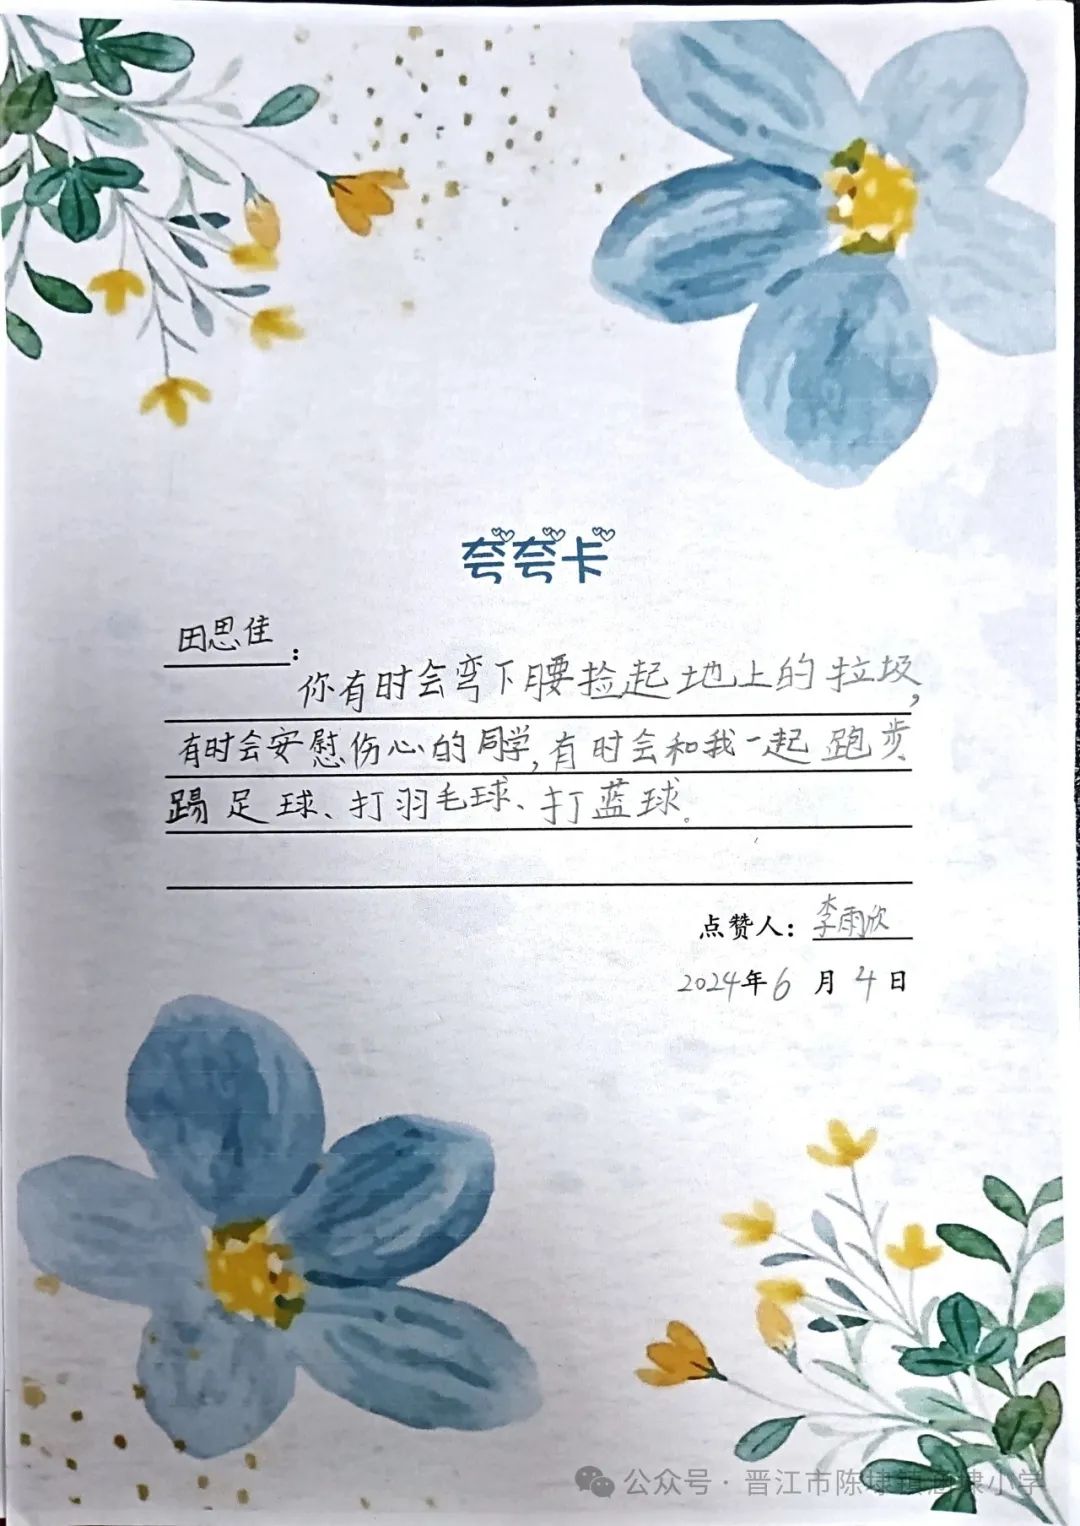 夸夸卡
田思佳：
你有时会弯下腰捡起地上的垃圾，
有时会安慰伤心的同学，有时会和我一起跑步
踢足球、打羽毛球、打蓝球。
点赞人：李雨欣
2024年6月4日
公众号·晋江市陈埭镇 埭小学